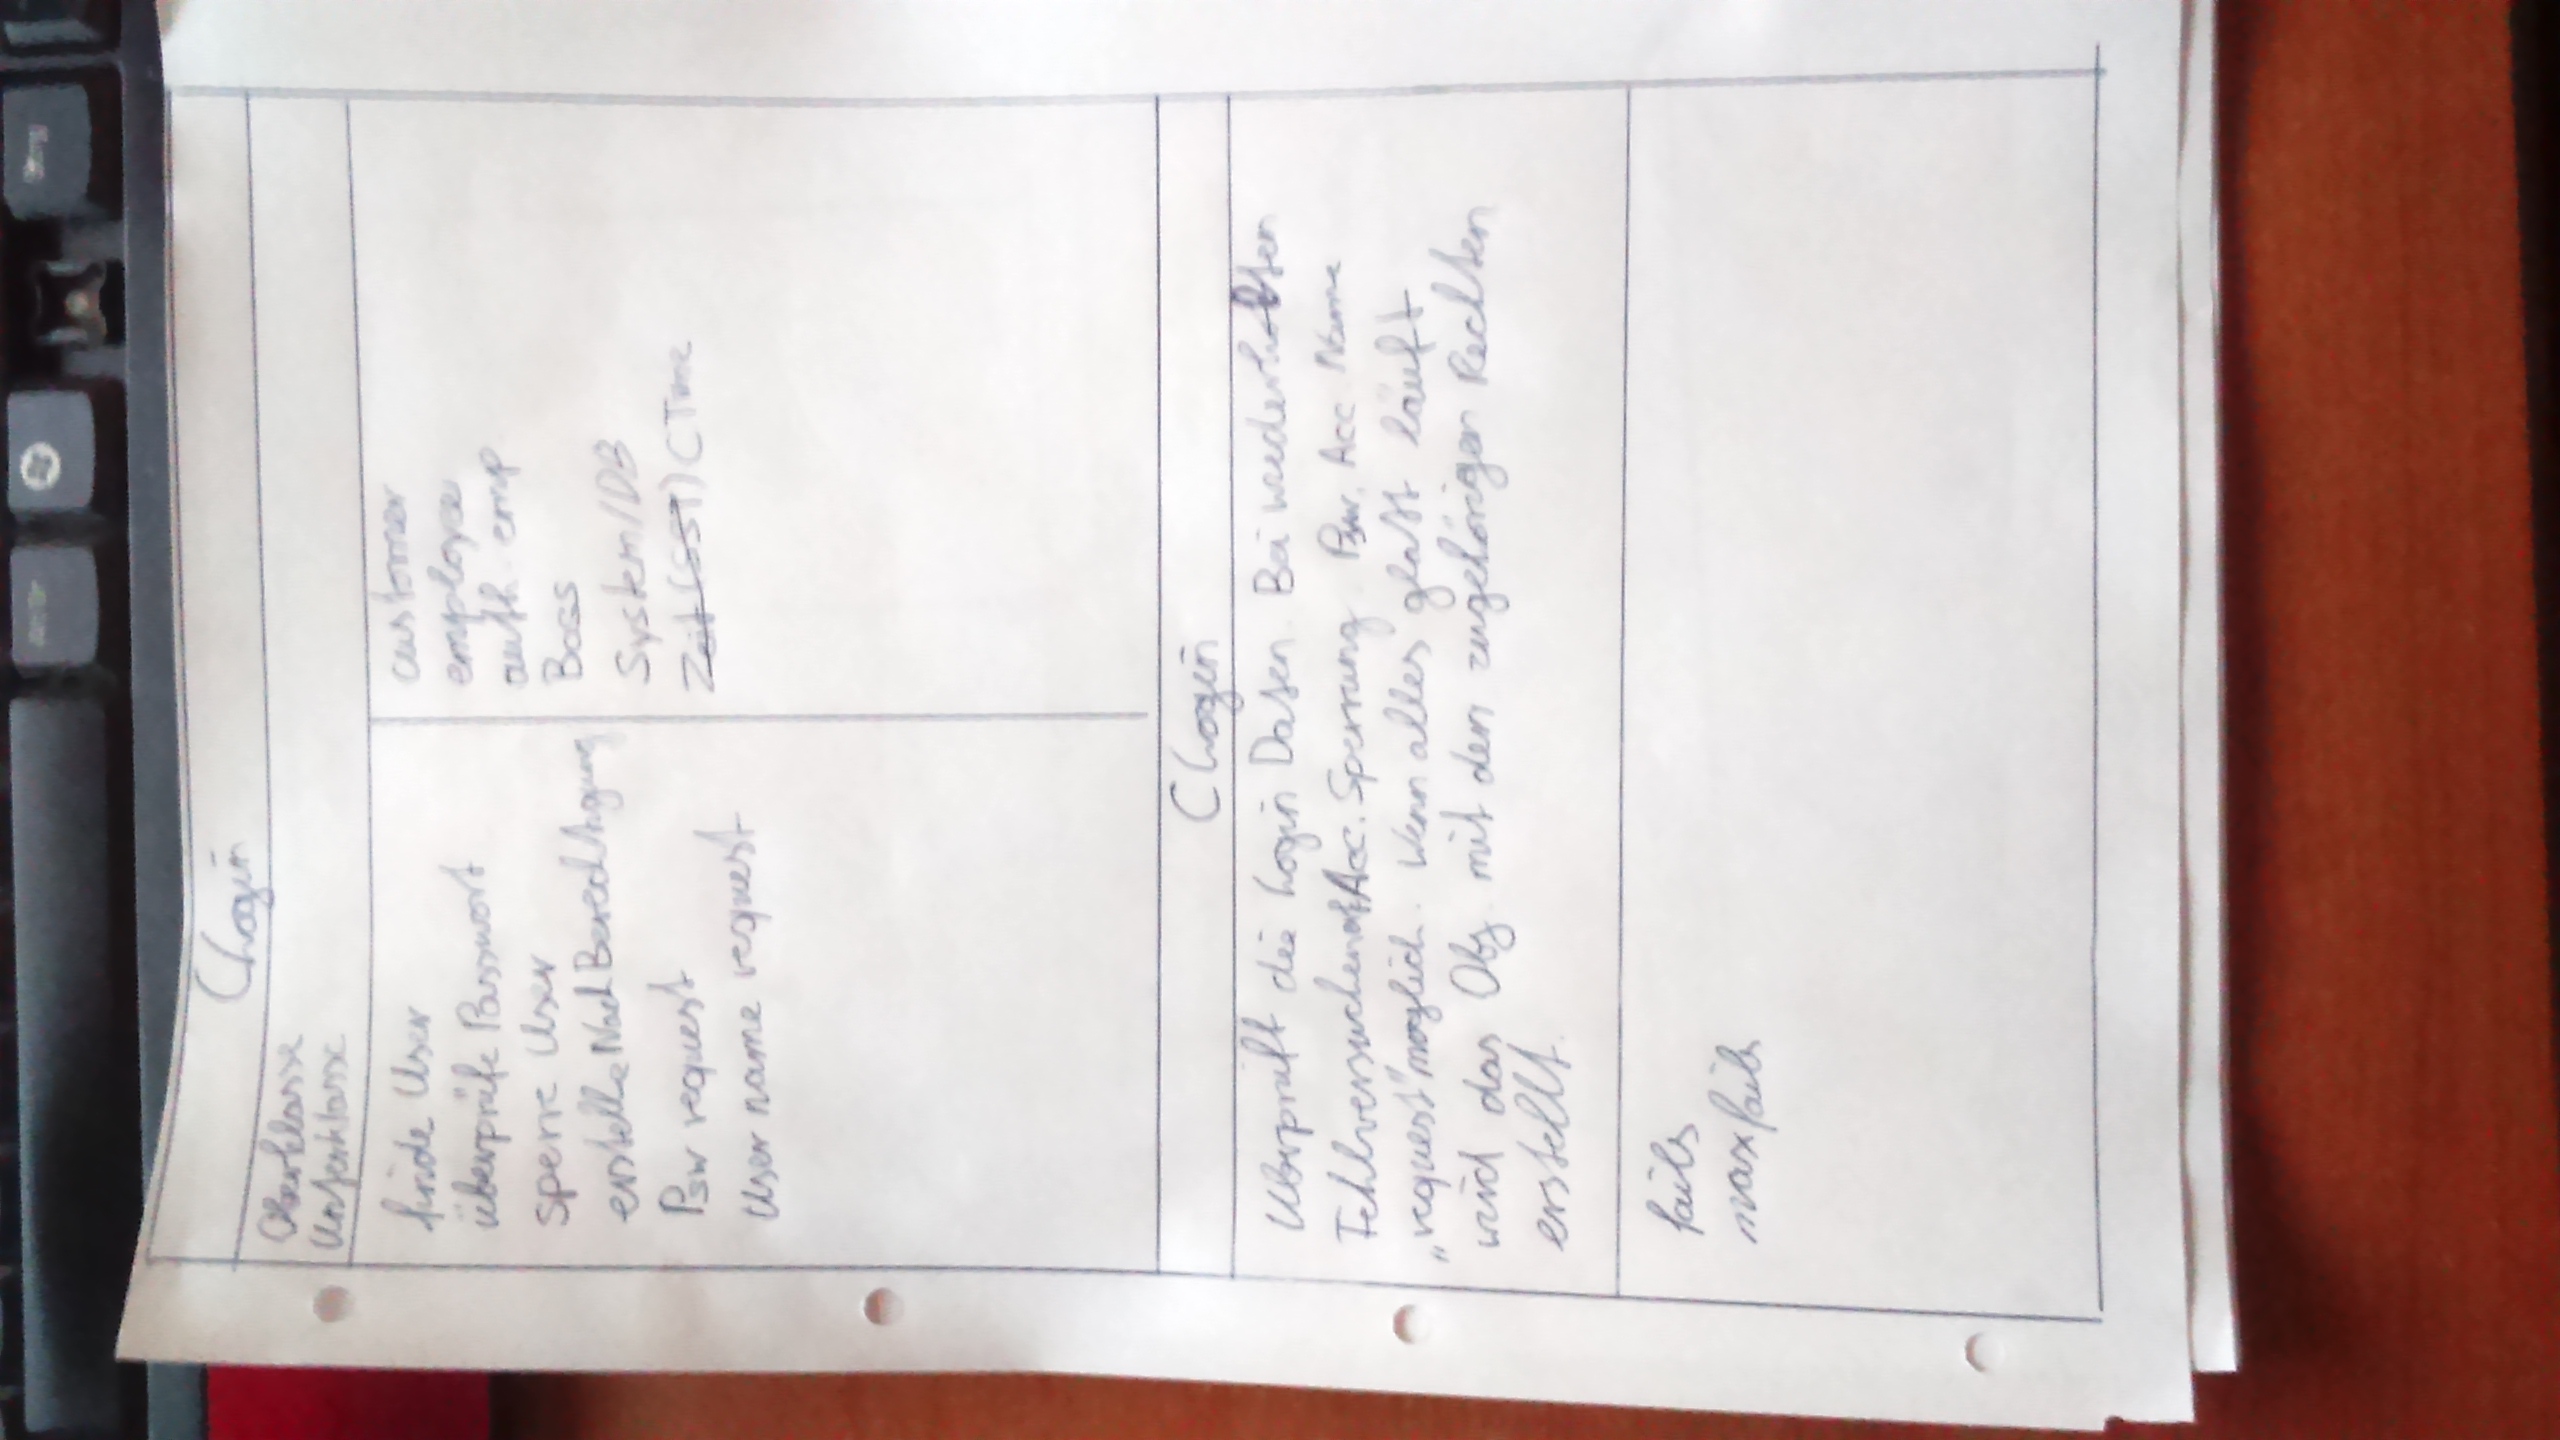 CLogin
Oberklasse
Unterklasse
finde User
überprüfe Passwort
sperre User
erstelle Nach Berechtigung
Psw request
User name request
customer
employee
auth. emp
Boss
System/DB
Zeit (SST) CTime
CLogin
Überprüft die Login Daten. Bei wiederholten
Fehlversuchen Acc. Sperrung. Psw. Acc Name
„request" möglich. Wenn alles glatt läuft
wird das Obj. mit den zugehörigen Rechten
erstellt.
fails
maxfails